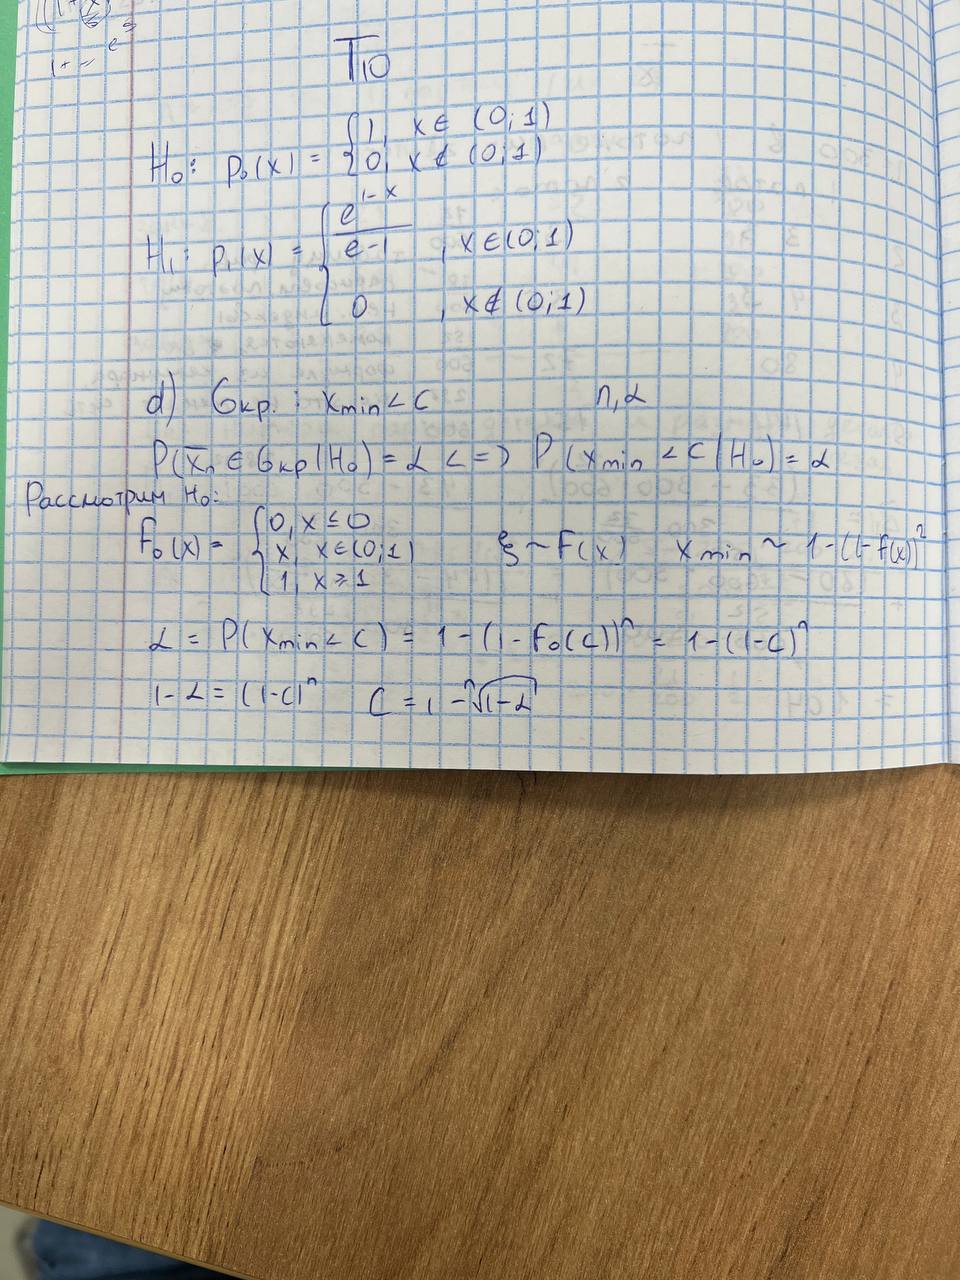 T10
H₀: p₀(x) = { 1, x ∈ (0;1)
0, x ∉ (0;1)
H₁: p₁(x) = { e^(1-x) / (e-1), x ∈ (0;1)
0, x ∉ (0;1)
d) Gкр. : xmin < C n, α
P(x̄n ∈ Gкр | H₀) = α <=> P(xmin < C | H₀) = α
Рассмотрим H₀:
F₀(x) = { 0, x ≤ 0
x, x ∈ (0;1) ξ ~ F(x) xmin ~ 1-(1-F(x))ⁿ
1, x ≥ 1
α = P(xmin < C) = 1-(1-F₀(C))ⁿ = 1-(1-C)ⁿ
1-α = (1-C)ⁿ C = 1 - ⁿ√(1-α)